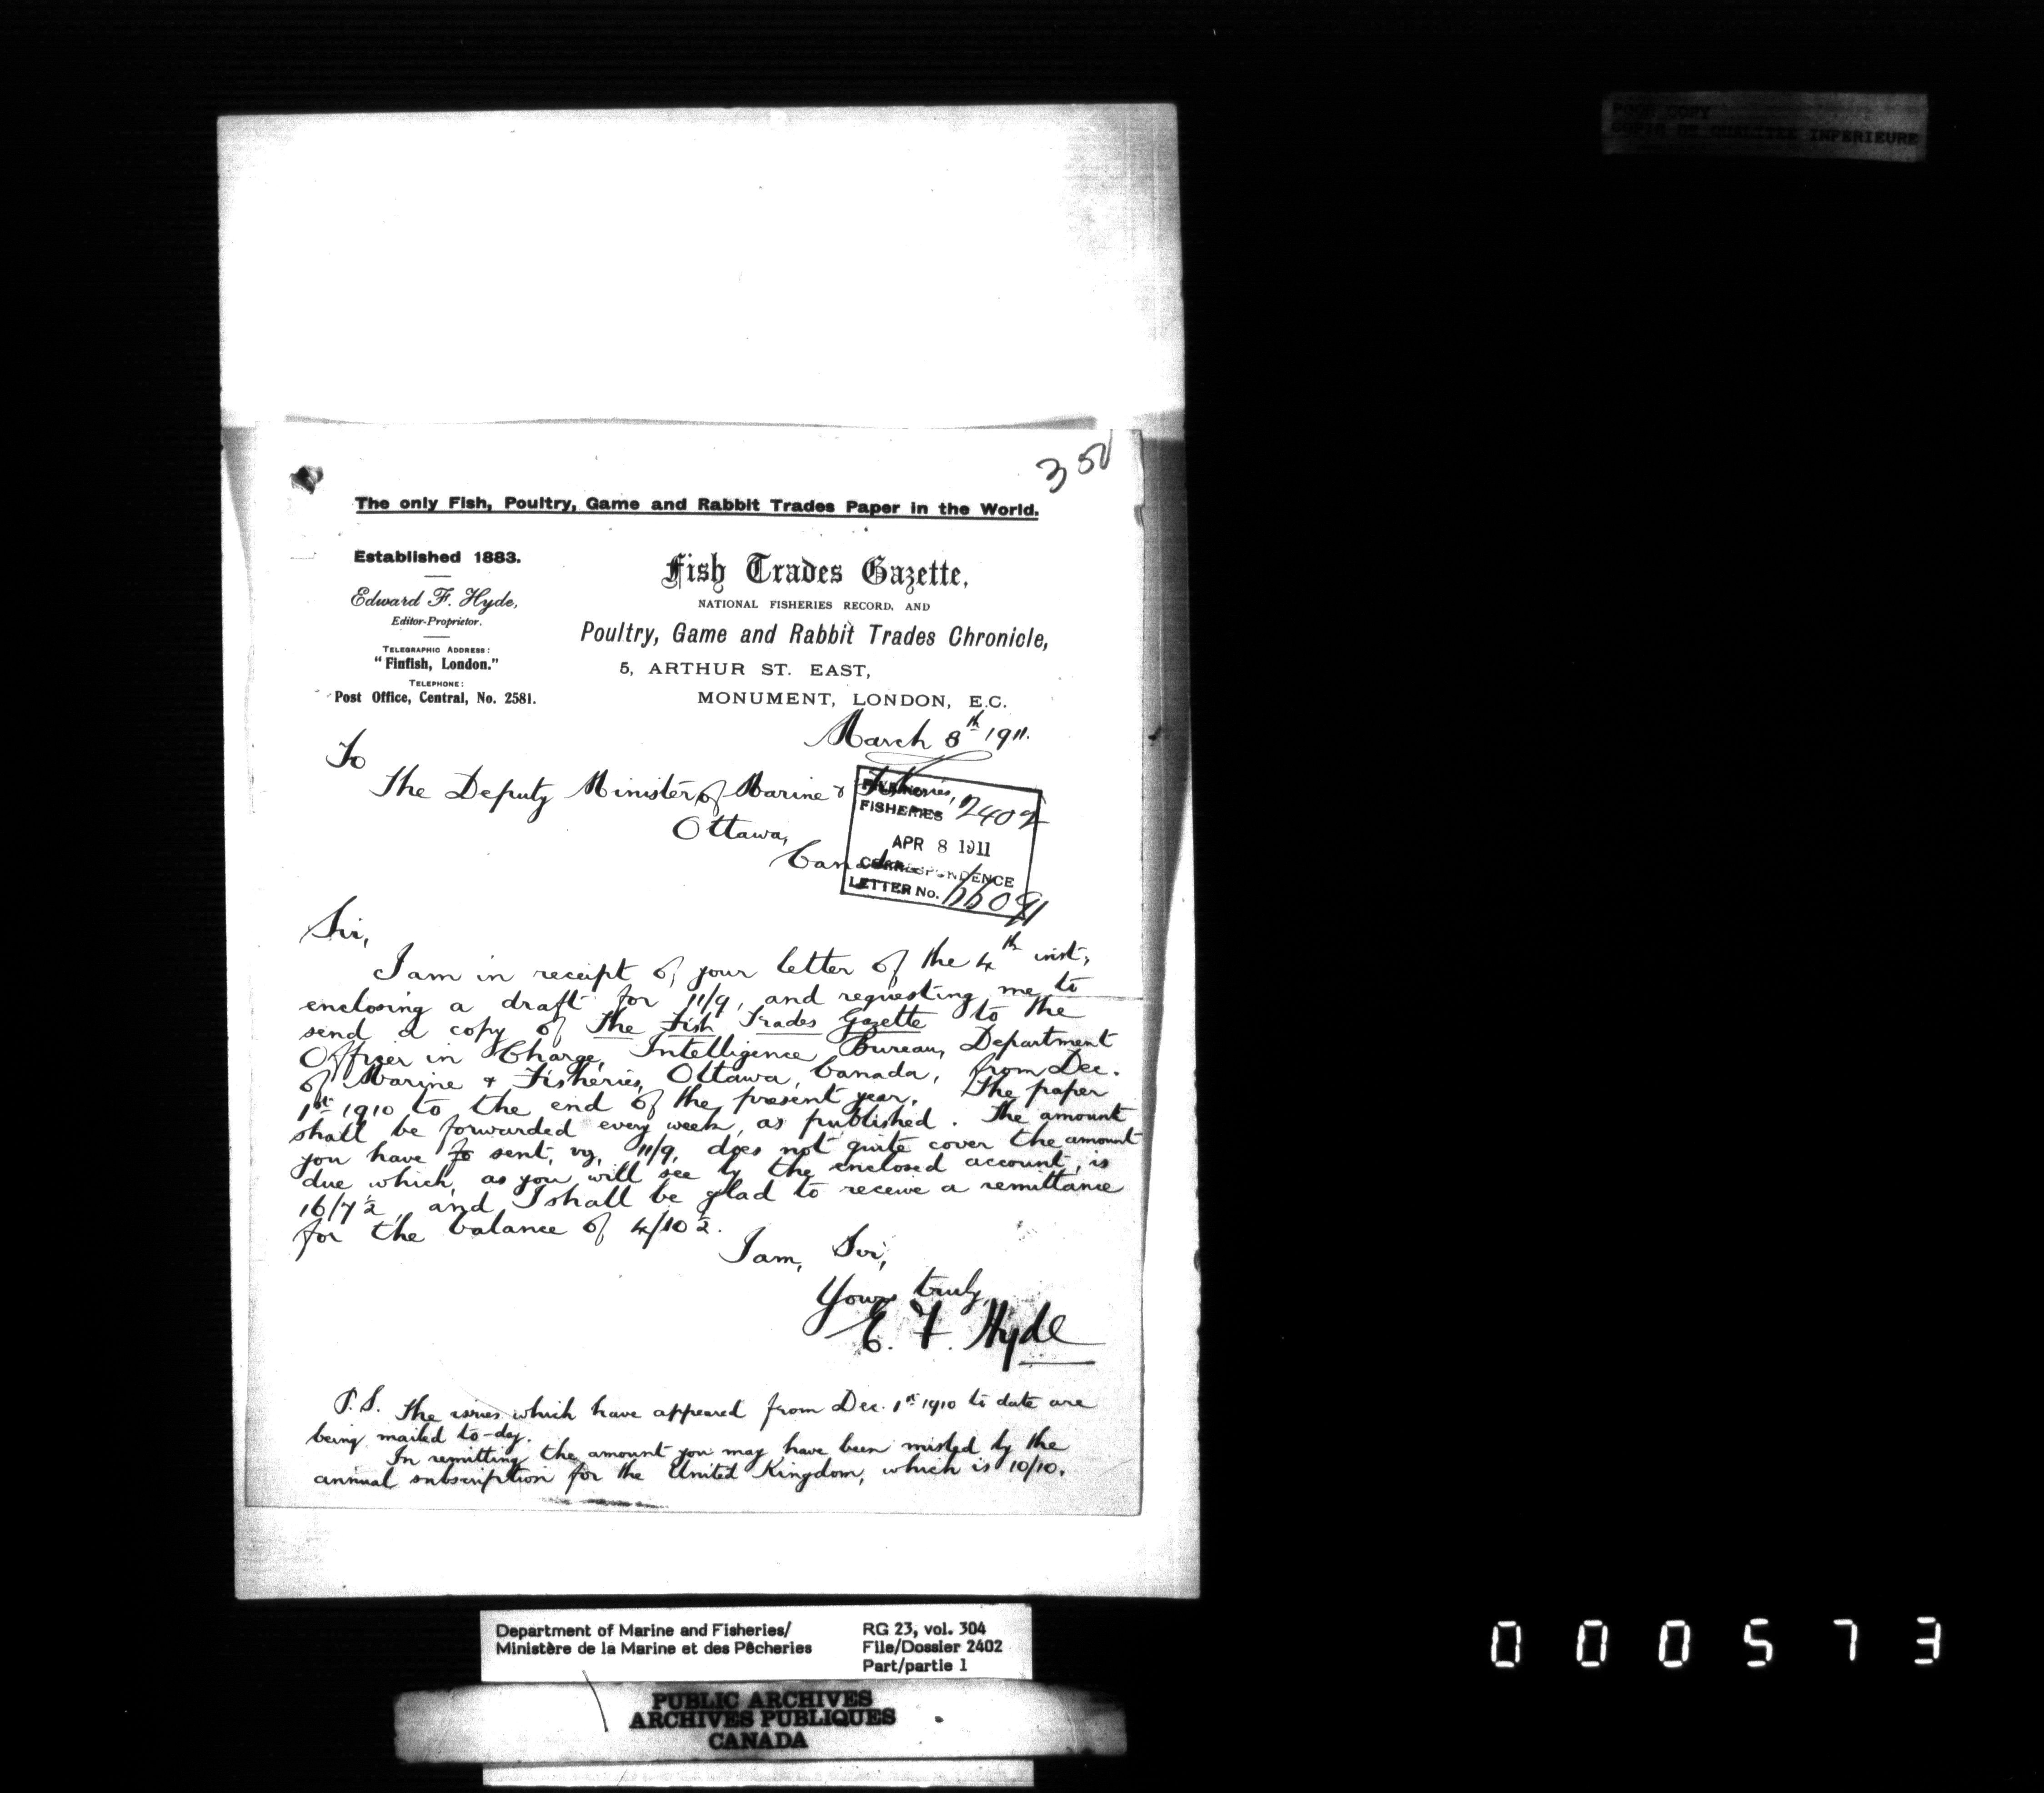 POOR COPY
COPIE DE QUALITEE INFERIEURE
350
The only Fish, Poultry, Game and Rabbit Trades Paper in the World.
Established 1883.
Edward F. Hyde,
Editor-Proprietor.
TELEGRAPHIC ADDRESS:
"Finfish, London."
TELEPHONE:
Post Office, Central, No. 2581.
Fish Trades Gazette,
NATIONAL FISHERIES RECORD, AND
Poultry, Game and Rabbit Trades Chronicle,
5, ARTHUR ST. EAST,
MONUMENT, LONDON, E.C.
March 8th 1911.
To
The Deputy Minister of Marine & Fisheries,
Ottawa,
Canada
FISHERIES 2402
APR 8 1911
CORRESPONDENCE
LETTER No.
Sir,
I am in receipt of your letter of the 4th inst,
enclosing a draft for 11/9, and requesting me to
send a copy of The Fish Trades Gazette to the
Officer in Charge, Intelligence Bureau, Department
of Marine & Fisheries, Ottawa, Canada, from Dec.
1st 1910 to the end of the present year. The paper
shall be forwarded every week, as published. The amount
you have to sent, vz, 11/9, does not quite cover the amount
due which, as you will see by the enclosed account, is
16/7½, and I shall be glad to receive a remittance
for the balance of 4/10½.
I am, Sir,
Yours truly,
E. F. Hyde
P.S. The issues which have appeared from Dec. 1st 1910 to date are
being mailed to-day.
In remitting the amount you may have been misled by the
annual subscription for the United Kingdom, which is 10/10.
Department of Marine and Fisheries/
Ministère de la Marine et des Pêcheries
RG 23, vol. 304
File/Dossier 2402
Part/partie 1
PUBLIC ARCHIVES
ARCHIVES PUBLIQUES
CANADA
000573